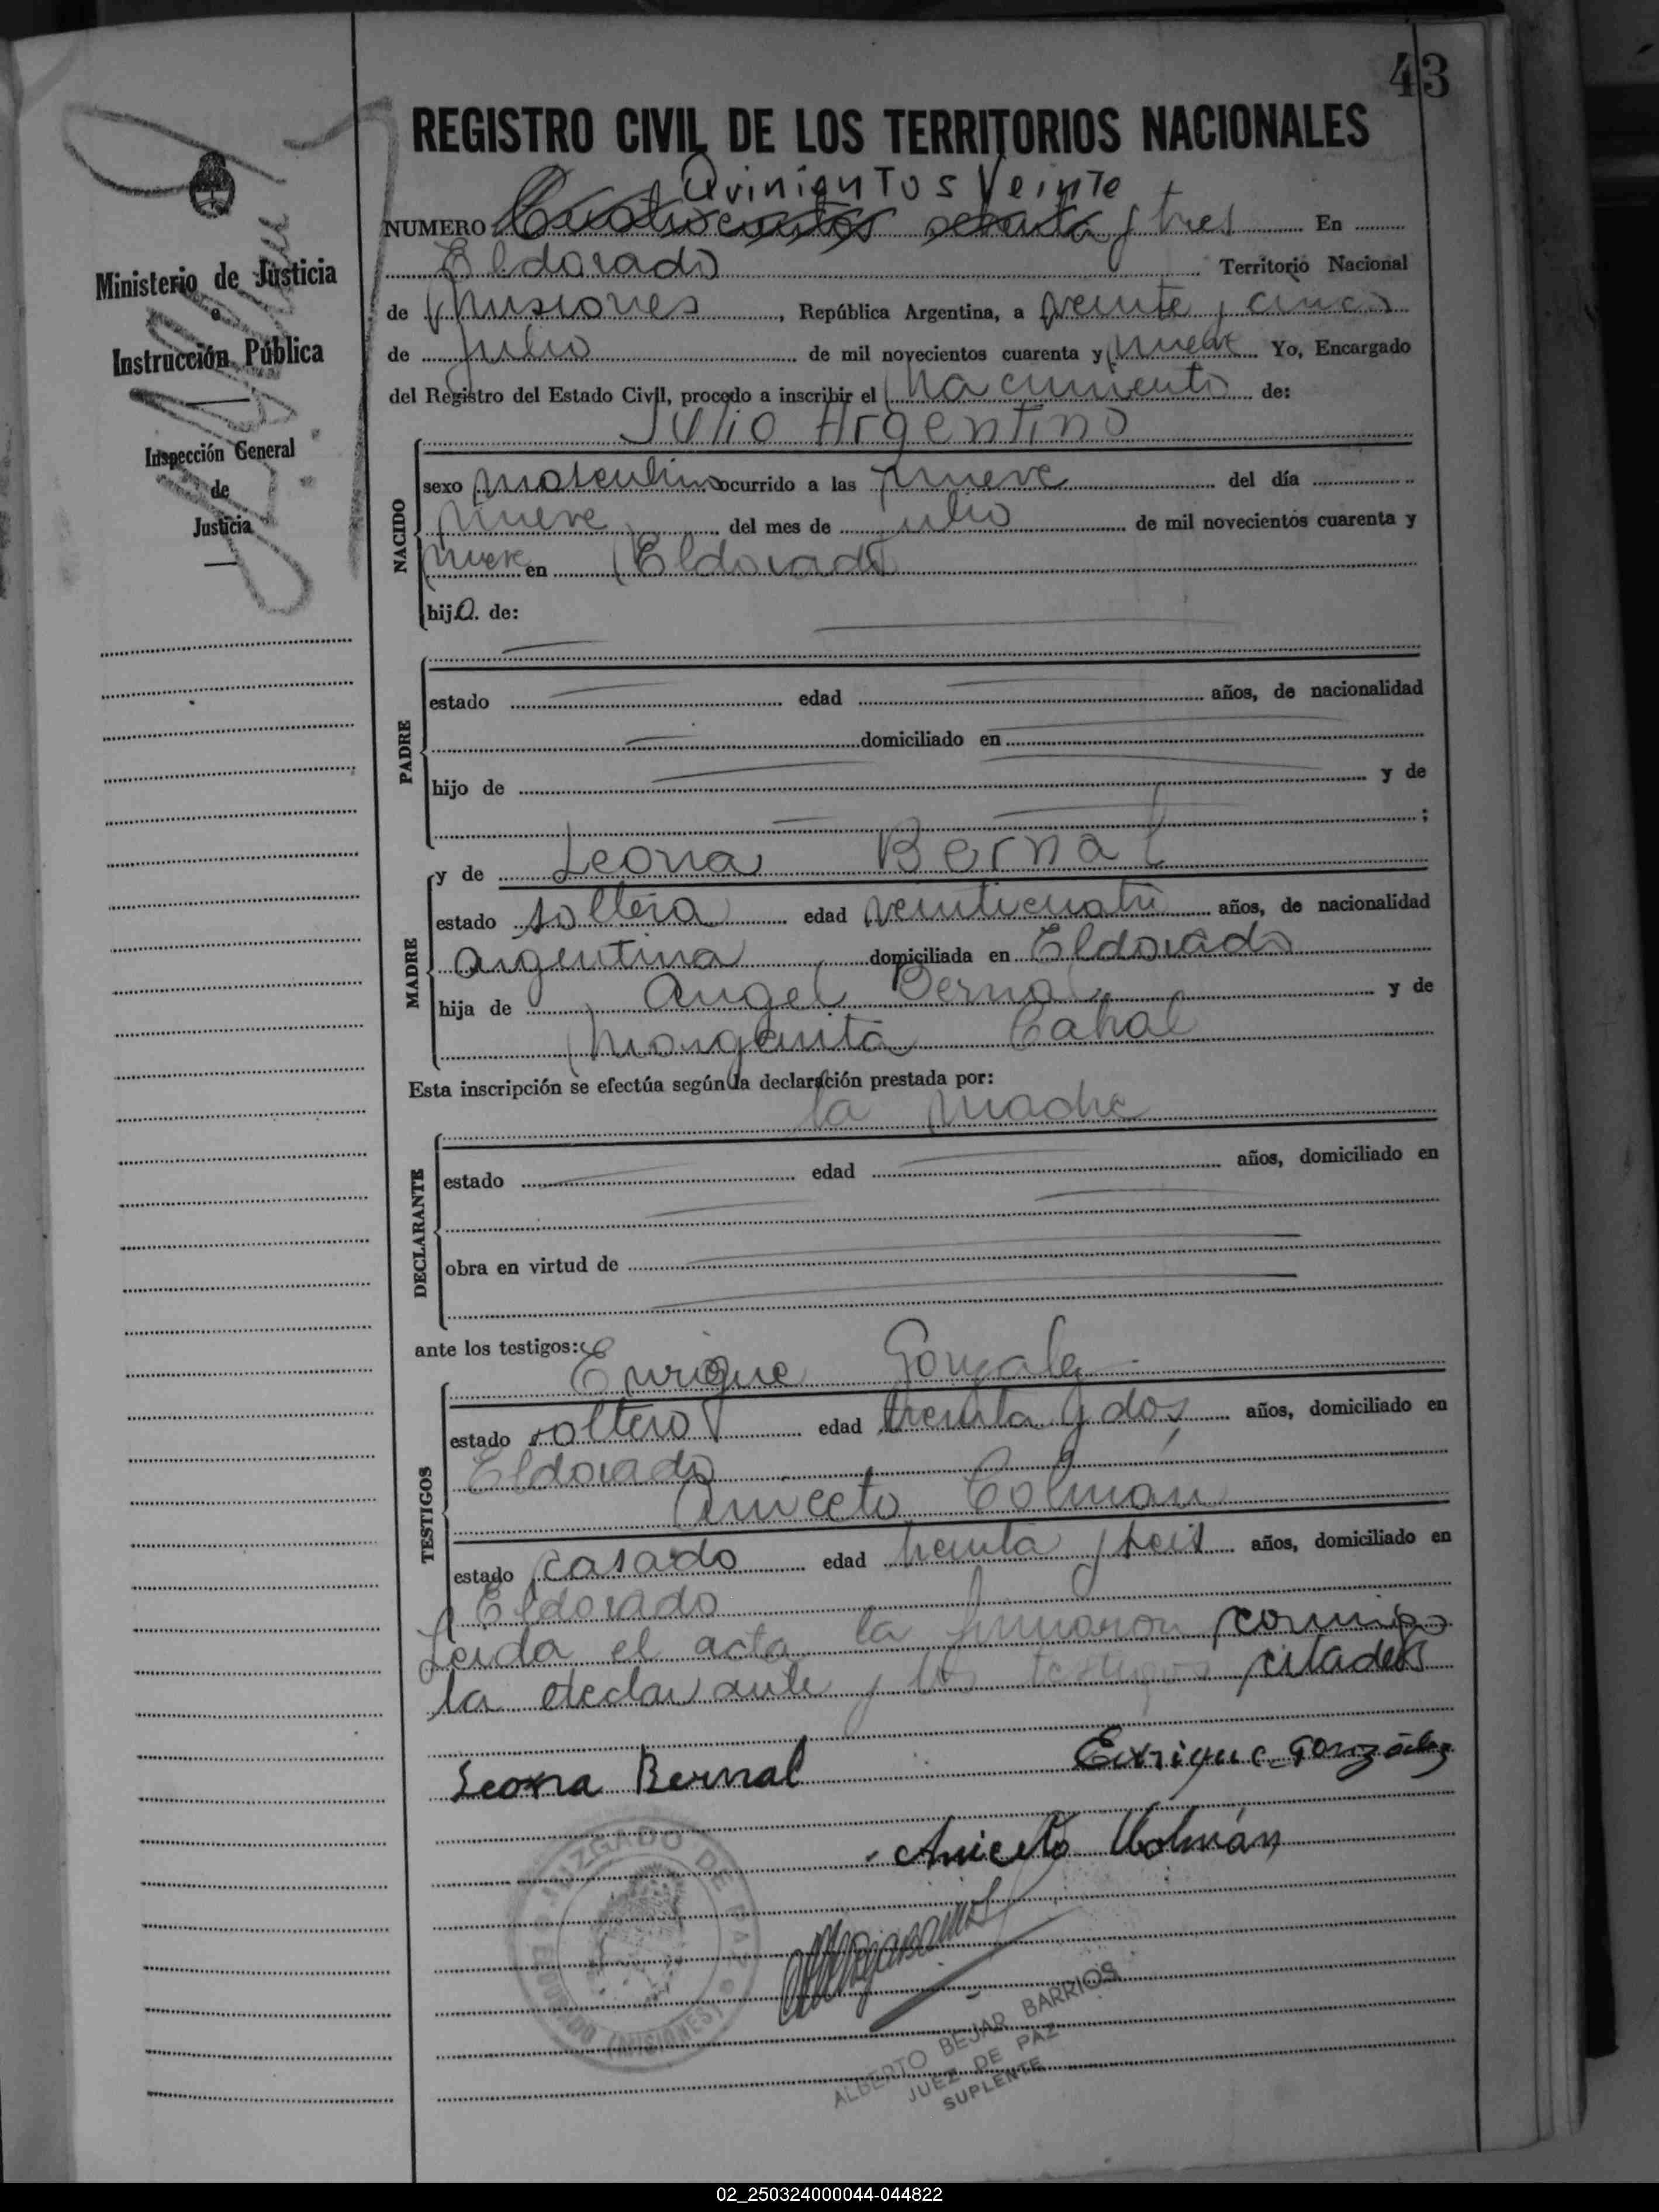 43
REGISTRO CIVIL DE LOS TERRITORIOS NACIONALES
Quinientos Veinte
NUMERO Cuatrocientos setenta y tres En
Eldorado Territorio Nacional
de Misiones, República Argentina, a veinte y cinco
de Julio de mil novecientos cuarenta y nueve Yo, Encargado
del Registro del Estado Civil, procedo a inscribir el nacimiento de:
Julio Argentino
NACIDO
sexo masculino ocurrido a las nueve del día
nueve del mes de julio de mil novecientos cuarenta y
nueve en Eldorado
hijo. de:
PADRE
estado edad años, de nacionalidad
domiciliado en
hijo de y de
;
MADRE
y de Leona Bernal
estado soltera edad veinticuatro años, de nacionalidad
argentina domiciliada en Eldorado
hija de Angel Bernal y de
Margarita
Esta inscripción se efectúa según la declaración prestada por:
la madre
DECLARANTE
estado edad años, domiciliado en
obra en virtud de
ante los testigos:
TESTIGOS
Enrique Gonzalez
estado soltero edad treinta y dos años, domiciliado en
Eldorado
Aniceto Colmán
estado casado edad treinta y seis años, domiciliado en
Eldorado
Leida el acta la firmaron conmigo
la declarante y los testigos citados
Leona Bernal
Enrique González
Aniceto Colmán
JUZGADO DE PAZ
ELDORADO (MISIONES)
ALBERTO BEJAR BARRIOS
JUEZ DE PAZ
SUPLENTE
Ministerio de Justicia
e
Instrucción Pública
Inspección General
de
Justicia
02_250324000044-044822